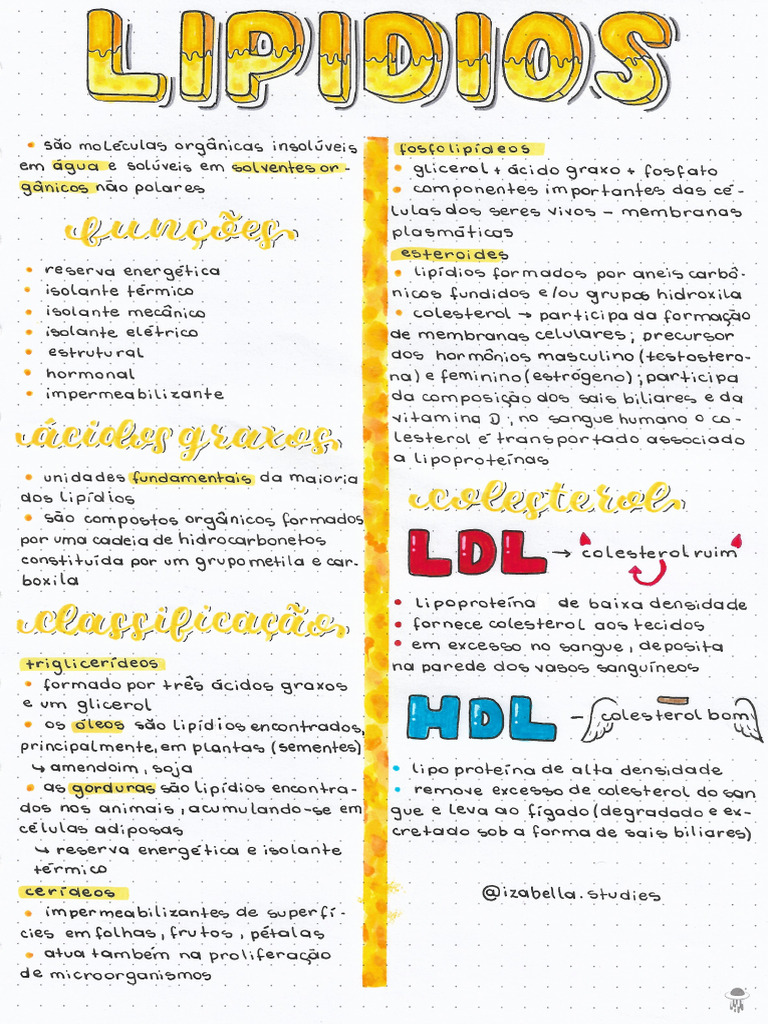 LIPIDIOS
• são moléculas orgânicas insolúveis
em água e solúveis em solventes or-
gânicos não polares
funções
• reserva energética
• isolante térmico
• isolante mecânico
• isolante elétrico
• estrutural
• hormonal
• impermeabilizante
ácidos graxos
• unidades fundamentais da maioria
dos lipídios
• são compostos orgânicos formados
por uma cadeia de hidrocarbonetos
constituída por um grupo metila e car-
boxila
classificação
triglicerídeos
• formado por três ácidos graxos
e um glicerol
• os óleos são lipídios encontrados,
principalmente, em plantas (sementes)
↳ amendoim, soja
• as gorduras são lipídios encontra-
dos nos animais, acumulando-se em
células adiposas
↳ reserva energética e isolante
térmico
cerídeos
• impermeabilizantes de superfí-
cies em folhas, frutos, pétalas
• atua também na proliferação
de microorganismos
fosfolipídeos
• glicerol + ácido graxo + fosfato
• componentes importantes das cé-
lulas dos seres vivos - membranas
plasmáticas
esteroides
• lipídios formados por aneis carbô-
nicos fundidos e/ou grupos hidroxila
• colesterol → participa da formação
de membranas celulares; precursor
dos hormônios masculino (testostero-
na) e feminino (estrógeno); participa
da composição dos sais biliares e da
vitamina D; no sangue humano o co-
lesterol é transportado associado
a lipoproteínas
colesterol
LDL → colesterol ruim
• lipoproteína de baixa densidade
• fornece colesterol aos tecidos
• em excesso no sangue, deposita
na parede dos vasos sanguíneos
HDL - colesterol bom
• lipo proteína de alta densidade
• remove excesso de colesterol do san
gue e leva ao fígado (degradado e ex-
cretado sob a forma de sais biliares)
@izabella.studies